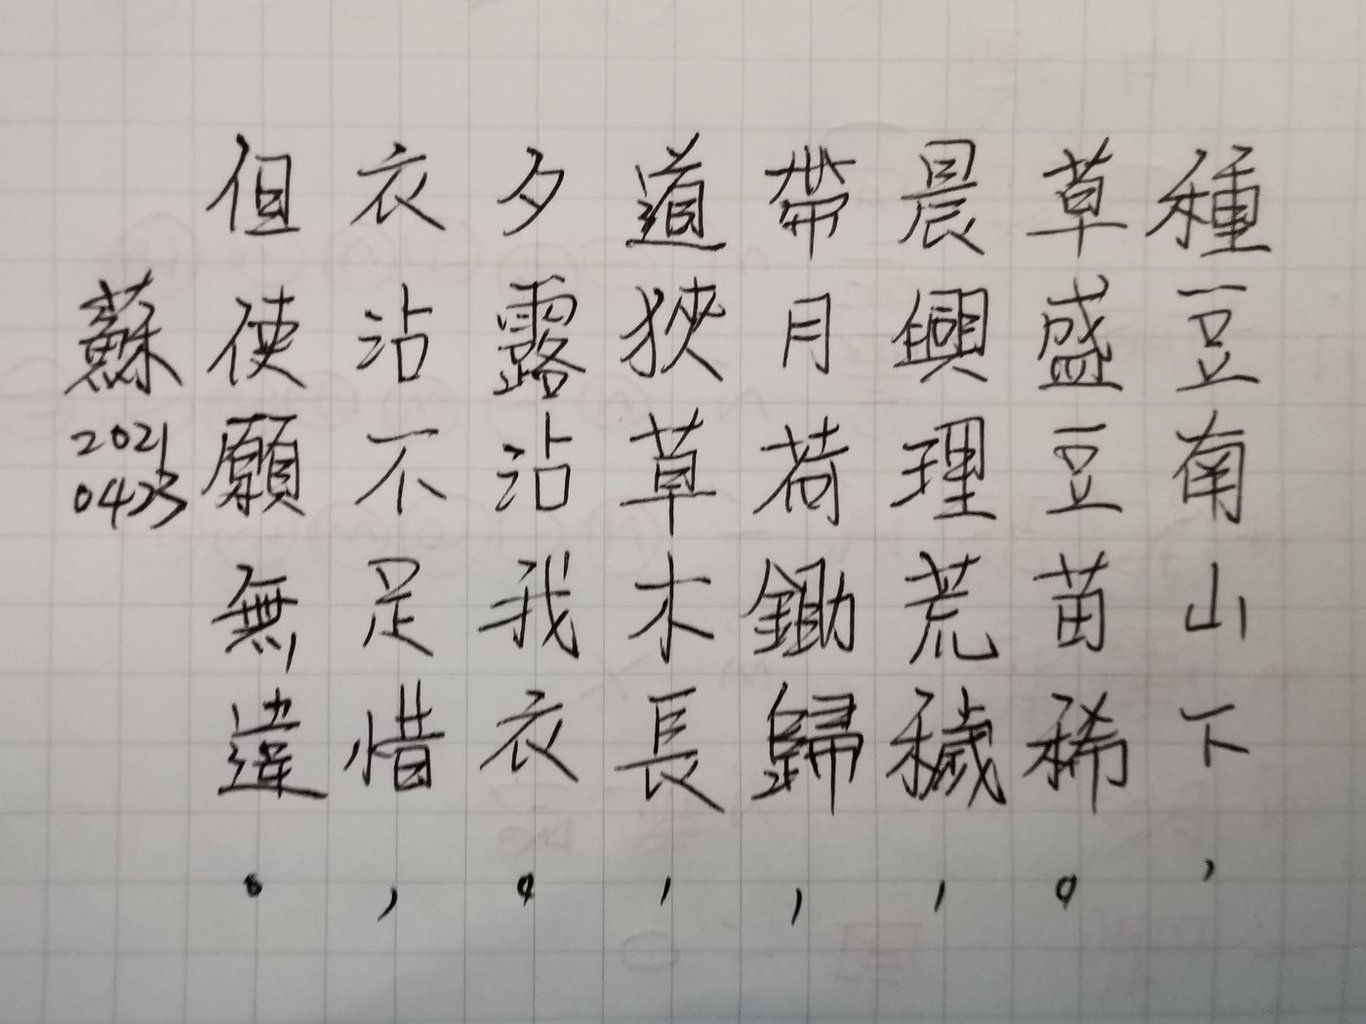 種豆南山下，
草盛豆苗稀。
晨興理荒穢，
帶月荷鋤歸，
道狹草木長，
夕露沾我衣。
衣沾不足惜，
但使願無違。
蘇
2021
0423